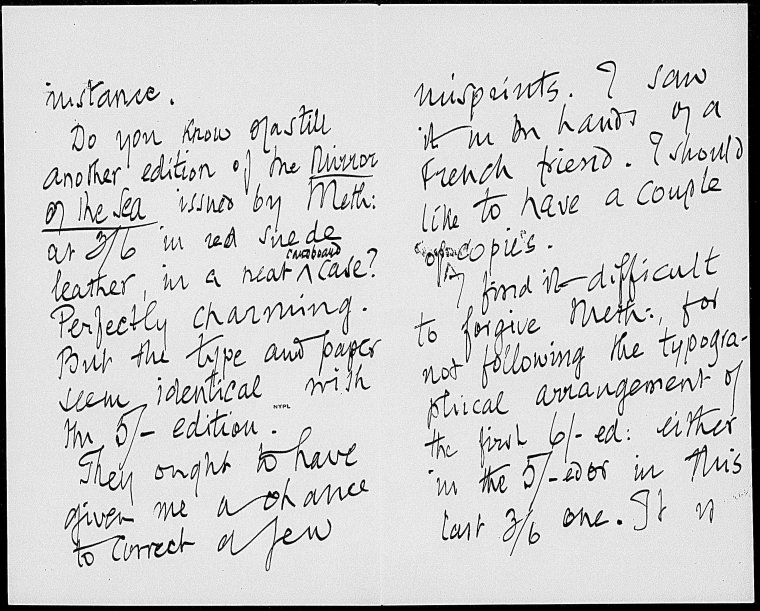 instance.
Do you know of a still
another edition of the Mirror
of the Sea issued by Meth:
at 3/6 in red suede
leather, in a neat cardboard case?
Perfectly charming.
But the type and paper
seem identical with
NYPL
the 5/- edition.
They ought to have
given me a chance
to correct a few
misprints. I saw
it in the hands of a
French friend. I should
like to have a couple
of copies.
I find it difficult
to forgive Meth:, for
not following the typogra-
phical arrangement of
the first 6/- ed: either
in the 5/- ed or in this
last 3/6 one. It is